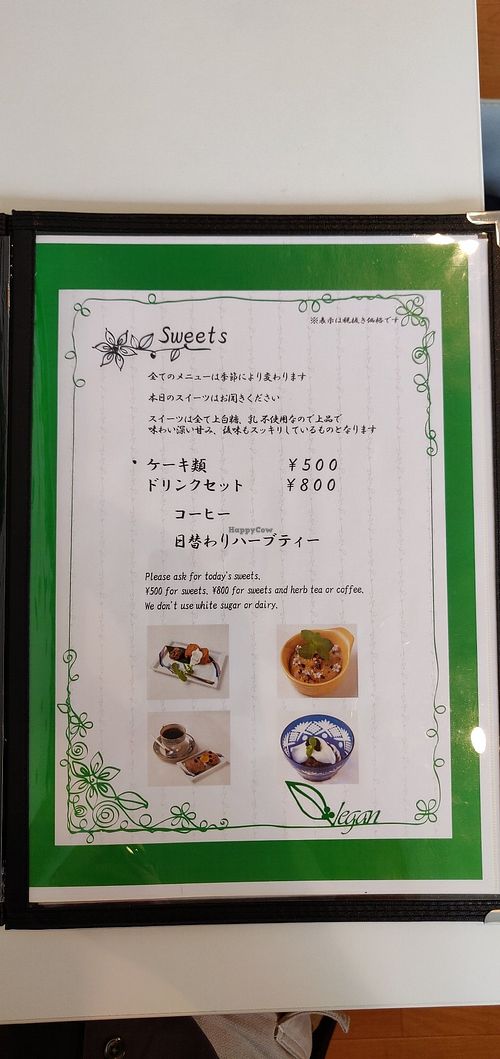 ※表示は税抜き価格です
Sweets
全てのメニューは季節により変わります
本日のスイーツはお聞きください
スイーツは全て上白糖、乳不使用なので上品で
味わい深い甘み、後味もスッキリしているものとなります
・ケーキ類 ¥500
ドリンクセット ¥800
コーヒー
HappyCow
日替わりハーブティー
Please ask for today's sweets.
¥500 for sweets. ¥800 for sweets and herb tea or coffee.
We don't use white sugar or dairy.
Vegan